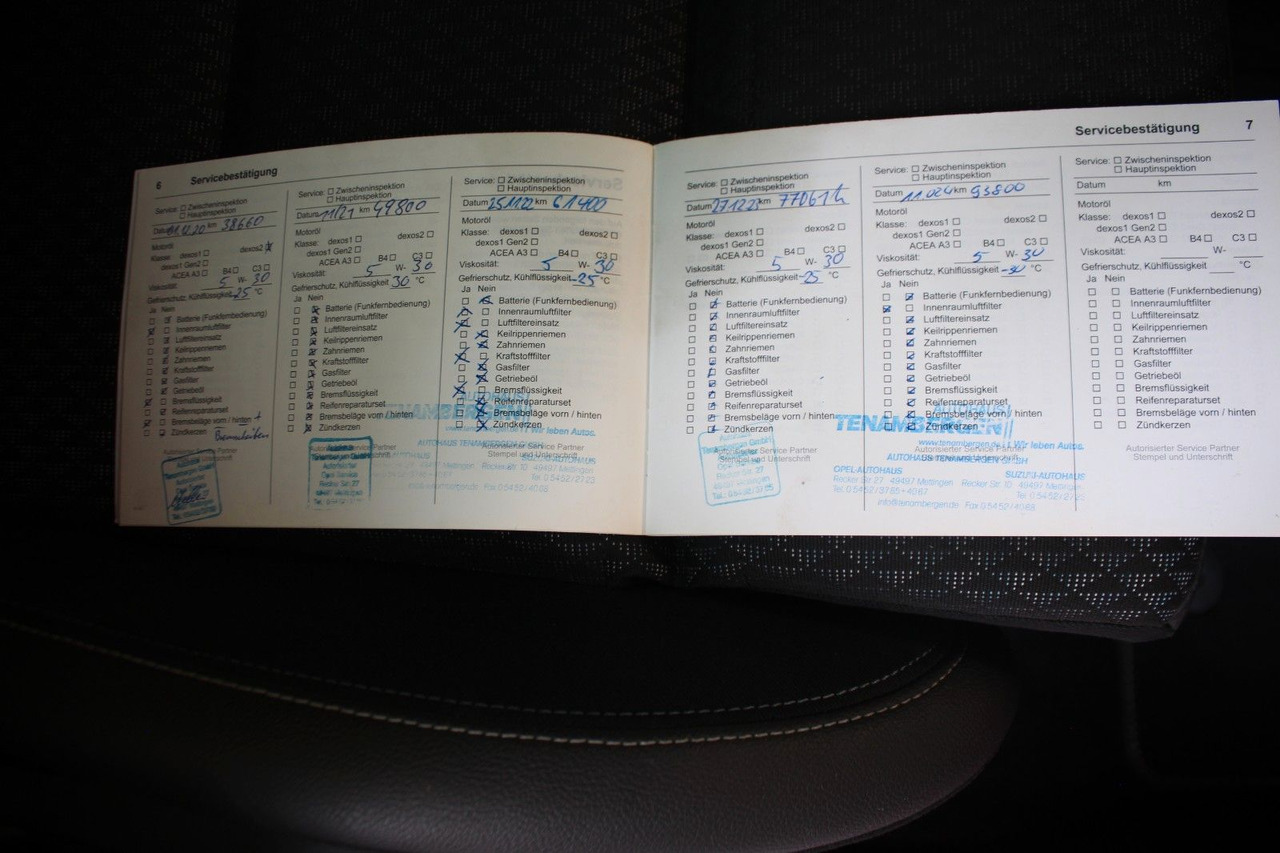 6 Servicebestätigung
Service: ☐ Zwischeninspektion
☐ Hauptinspektion
Datum 11.12.20 km 38660
Motoröl
Klasse: dexos1 ☐ dexos2 ☒
dexos1 Gen2 ☐
ACEA A3 ☐ B4 ☐ C3 ☐
Viskosität: 5 W- 30
Gefrierschutz, Kühlflüssigkeit -25 °C
Ja Nein
Batterie (Funkfernbedienung)
Innenraumluftfilter
Luftfiltereinsatz
Keilrippenriemen
Zahnriemen
Kraftstofffilter
Gasfilter
Getriebeöl
Bremsflüssigkeit
Reifenreparaturset
Bremsbeläge vorn / hinten +
Zündkerzen Bremsscheiben
Autorisierter Service Partner
Service: ☐ Zwischeninspektion
☐ Hauptinspektion
Datum 11/21 km 49800
Motoröl
Klasse: dexos1 ☐ dexos2 ☐
dexos1 Gen2 ☐
ACEA A3 ☐ B4 ☐ C3 ☐
Viskosität: 5 W- 30
Gefrierschutz, Kühlflüssigkeit 30 °C
Ja Nein
Batterie (Funkfernbedienung)
Innenraumluftfilter
Luftfiltereinsatz
Keilrippenriemen
Zahnriemen
Kraftstofffilter
Gasfilter
Getriebeöl
Bremsflüssigkeit
Reifenreparaturset
Bremsbeläge vorn / hinten
Zündkerzen
Service: ☐ Zwischeninspektion
☐ Hauptinspektion
Datum 25.11.22 km 61400
Motoröl
Klasse: dexos1 ☐ dexos2 ☐
dexos1 Gen2 ☐
ACEA A3 ☐ B4 ☐ C3 ☐
Viskosität: 5 W- 30
Gefrierschutz, Kühlflüssigkeit -25 °C
Ja Nein
Batterie (Funkfernbedienung)
Innenraumluftfilter
Luftfiltereinsatz
Keilrippenriemen
Zahnriemen
Kraftstofffilter
Gasfilter
Getriebeöl
Bremsflüssigkeit
Reifenreparaturset
Bremsbeläge vorn / hinten
Zündkerzen
Autorisierter Service Partner
Stempel und Unterschrift
TENAMBERGEN
Wir leben Autos.
AUTOHAUS TENAMBERGEN GMBH
Recker Str. 10 49497 Mettingen
Servicebestätigung 7
Service: ☐ Zwischeninspektion
☐ Hauptinspektion
Datum 27.12.23 km 77061
Motoröl
Klasse: dexos1 ☐ dexos2 ☐
dexos1 Gen2 ☐
ACEA A3 ☐ B4 ☐ C3 ☐
Viskosität: 5 W- 30
Gefrierschutz, Kühlflüssigkeit -25 °C
Ja Nein
Batterie (Funkfernbedienung)
Innenraumluftfilter
Luftfiltereinsatz
Keilrippenriemen
Zahnriemen
Kraftstofffilter
Gasfilter
Getriebeöl
Bremsflüssigkeit
Reifenreparaturset
Bremsbeläge vorn / hinten
Zündkerzen
Autorisierter Service Partner
Stempel und Unterschrift
Service: ☐ Zwischeninspektion
☐ Hauptinspektion
Datum km 93800
Motoröl
Klasse: dexos1 ☐ dexos2 ☐
dexos1 Gen2 ☐
ACEA A3 ☐ B4 ☐ C3 ☐
Viskosität: 5 W- 30
Gefrierschutz, Kühlflüssigkeit -30 °C
Ja Nein
Batterie (Funkfernbedienung)
Innenraumluftfilter
Luftfiltereinsatz
Keilrippenriemen
Zahnriemen
Kraftstofffilter
Gasfilter
Getriebeöl
Bremsflüssigkeit
Reifenreparaturset
Bremsbeläge vorn / hinten
Zündkerzen
Autorisierter Service Partner
AUTOHAUS
TENAMBERGEN
www.tenambergen.de Wir leben Autos.
AUTOHAUS TENAMBERGEN GMBH
OPEL-AUTOHAUS SUZUKI-AUTOHAUS
Recker Str. 27 49497 Mettingen Recker Str. 10 49497 Mettingen
Tel. 0 54 52 / 37 55 + 40 67 Tel. 0 54 52 / 27 23
info@tenambergen.de Fax 0 54 52 / 40 68
Service: ☐ Zwischeninspektion
☐ Hauptinspektion
Datum km
Motoröl
Klasse: dexos1 ☐ dexos2 ☐
dexos1 Gen2 ☐
ACEA A3 ☐ B4 ☐ C3 ☐
Viskosität: W-
Gefrierschutz, Kühlflüssigkeit °C
Ja Nein
☐ ☐ Batterie (Funkfernbedienung)
☐ ☐ Innenraumluftfilter
☐ ☐ Luftfiltereinsatz
☐ ☐ Keilrippenriemen
☐ ☐ Zahnriemen
☐ ☐ Kraftstofffilter
☐ ☐ Gasfilter
☐ ☐ Getriebeöl
☐ ☐ Bremsflüssigkeit
☐ ☐ Reifenreparaturset
☐ ☐ Bremsbeläge vorn / hinten
☐ ☐ Zündkerzen
Autorisierter Service Partner
Stempel und Unterschrift